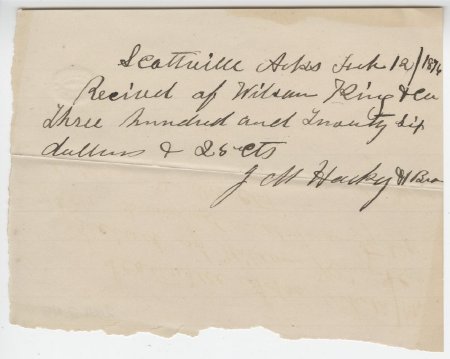 Scottville Arks Feb 12/1876
Recived of Wilson King & Co
Three hundred and Twenty six
dollars & 25 cts
J M Hacky & Bro